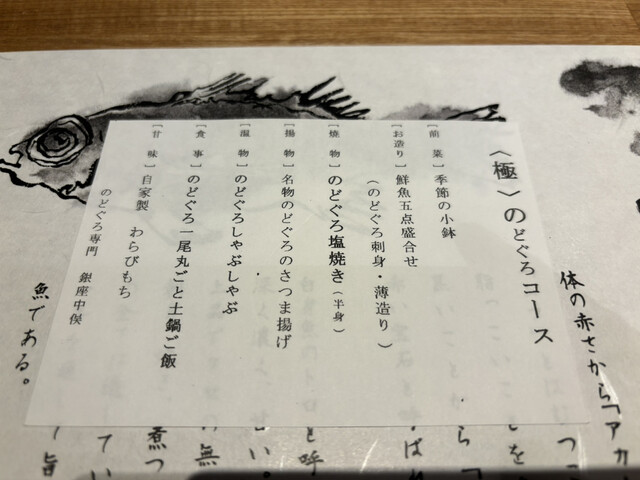 〈極〉のどぐろコース
［前菜］季節の小鉢
［お造り］鮮魚五点盛合せ
（のどぐろ刺身・薄造り）
［焼物］のどぐろ塩焼き（半身）
［揚物］名物のどぐろのさつま揚げ
［温物］のどぐろしゃぶしゃぶ
［食事］のどぐろ一尾丸ごと土鍋ご飯
［甘味］自家製 わらびもち
のどぐろ専門 銀座中俣
体の赤さから「アカ
魚である。